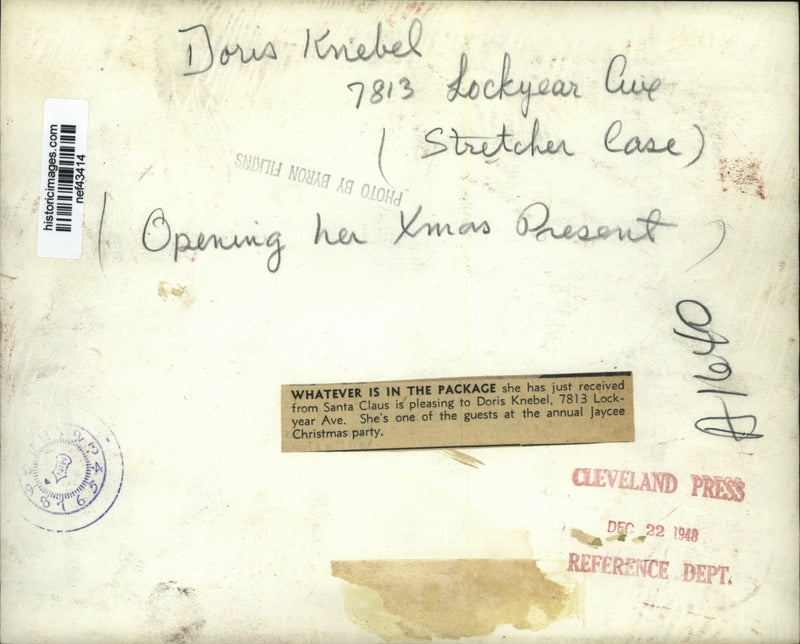 Doris Knebel
7813 Lockyear Ave
(Stretcher Case)
PHOTO BY BYRON FILKINS
(Opening her Xmas Present)
historicimages.com
nef43414
A1640
WHATEVER IS IN THE PACKAGE she has just received
from Santa Claus is pleasing to Doris Knebel, 7813 Lock-
year Ave. She's one of the guests at the annual Jaycee
Christmas party.
CLEVELAND PRESS
DEC 22 1948
REFERENCE DEPT.